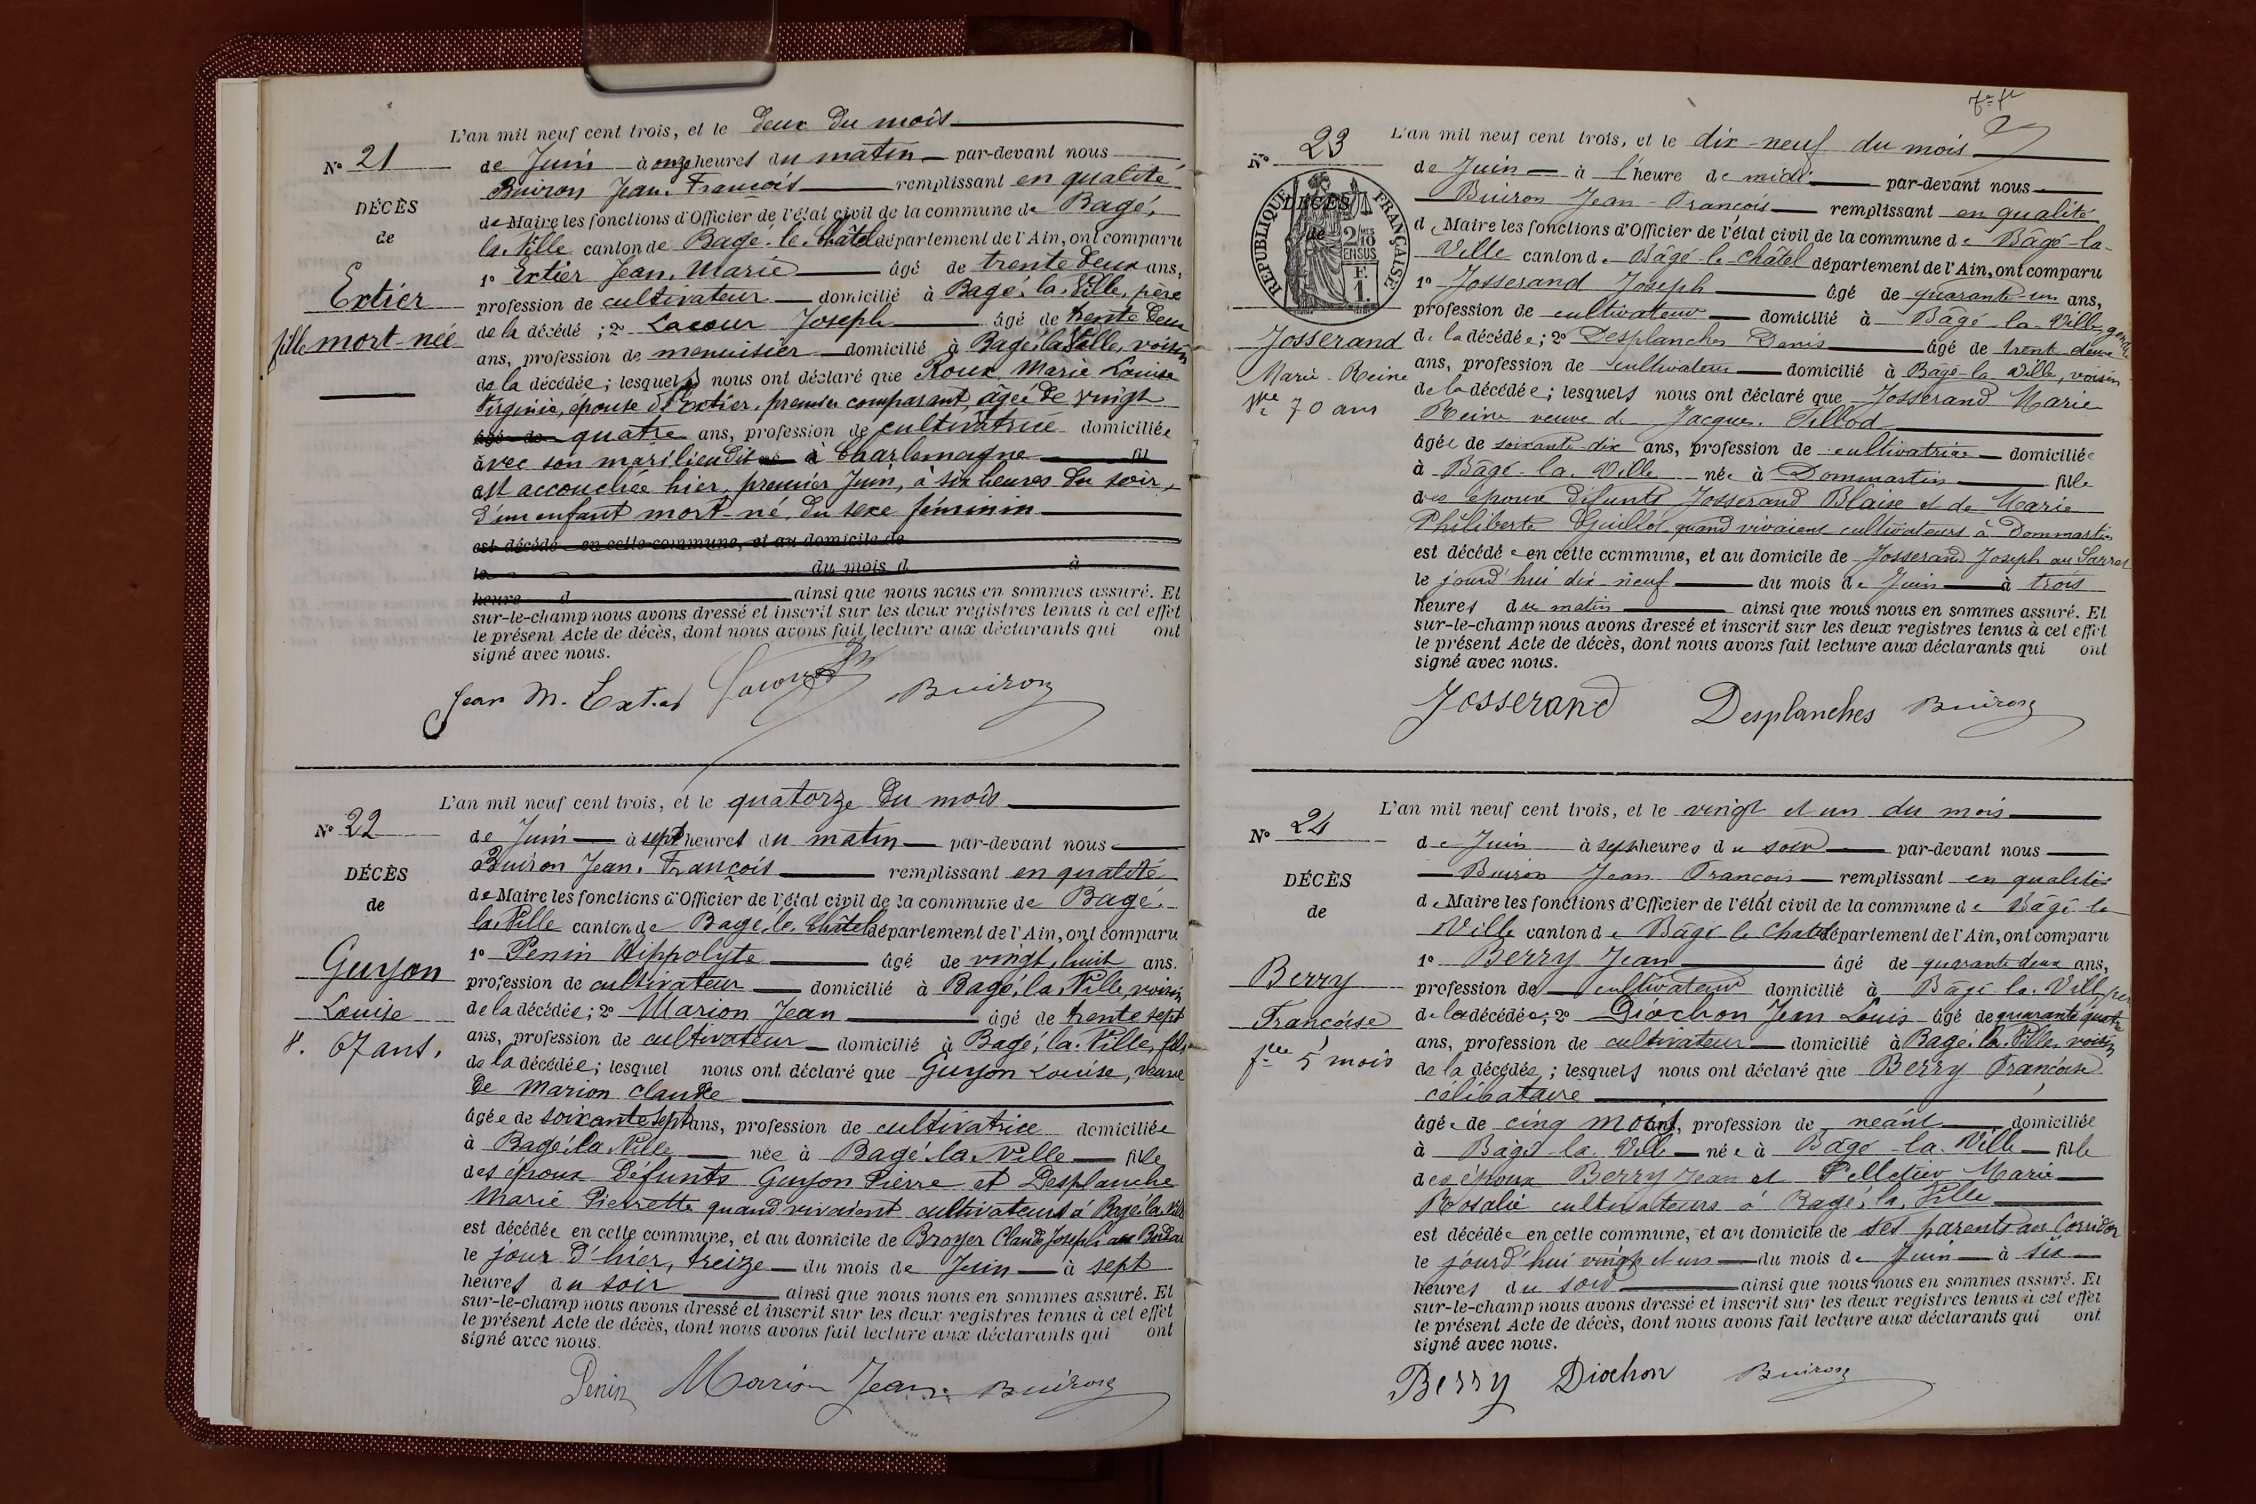 L'an mil neuf cent trois, et le deux du mois
N° 21
de Juin à onze heures du matin par-devant nous
Buiron Jean. François remplissant en qualité
DÉCÈS
de Maire les fonctions d'Officier de l'état civil de la commune de Bagé.
de
la. Ville canton de Bagé. le. Châtel département de l'Ain, ont comparu
1° Extier Jean. Marie âgé de trente deux ans,
Extier
profession de cultivateur domicilié à Bagé. la. Ville, père
fille mort-née
de la décédé ; 2° Lacour Joseph âgé de trente deux
ans, profession de menuisier domicilié à Bagé. la Ville, voisin
de la décédée ; lesquels nous ont déclaré que Roux Marie Louise
Virginie, épouse d'Extier, premier comparant, âgée de vingt
âgé de quatre ans, profession de cultivatrice domiciliée
avec son mari lieu dit à Charlemagne fil
est accouchée hier, premier Juin, à six heures du soir,
d'un enfant mort-né, du sexe féminin
est décédé en cette commune, et au domicile de
le du mois d à
heure d ainsi que nous nous en sommes assuré. Et
sur-le-champ nous avons dressé et inscrit sur les deux registres tenus à cet effet
le présent Acte de décès, dont nous avons fait lecture aux déclarants qui ont
signé avec nous.
Jean M. Extier Lacour Buiron
L'an mil neuf cent trois, et le quatorze du mois
N° 22
de Juin à sept heures du matin par-devant nous
Buiron Jean. François remplissant en qualité
DÉCÈS
de Maire les fonctions d'Officier de l'état civil de la commune de Bagé.
de
la. Ville canton de Bagé. le. Châtel département de l'Ain, ont comparu
1° Penin Hippolyte âgé de vingt. huit ans.
Guyon
profession de cultivateur domicilié à Bagé. la. Ville, voisin
Louise
de la décédée ; 2° Marion Jean âgé de trente sept
67 ans.
ans, profession de cultivateur domicilié à Bagé. la. Ville, fils
de la décédée ; lesquel nous ont déclaré que Guyon Louise, veuve
de Marion Claude
âgée de soixante sept ans, profession de cultivatrice domiciliée
à Bagé. la Ville née à Bagé. la. Ville fille
des époux défunts Guyon Pierre et Desplanche
Marie Pierrette quand vivaient cultivateurs à Bagé. la. Ville
est décédée en cette commune, et au domicile de Broyer Claude Joseph au
le jour d'hier, treize du mois de Juin à sept
heures du soir ainsi que nous nous en sommes assuré. Et
sur-le-champ nous avons dressé et inscrit sur les deux registres tenus à cet effet
le présent Acte de décès, dont nous avons fait lecture aux déclarants qui ont
signé avec nous.
Penin Marion Jean. Buiron
L'an mil neuf cent trois, et le dix-neuf du mois
N° 23
de Juin à l'heure de midi par-devant nous
Buiron Jean-François remplissant en qualité
DÉCÈS
de
RÉPUBLIQUE FRANÇAISE
2/10 EN SUS
F. 1.
de Maire les fonctions d'Officier de l'état civil de la commune de Bâgé-la-
Ville canton de Bâgé-le-Châtel département de l'Ain, ont comparu
1° Josserand Joseph âgé de quarante-un ans,
profession de cultivateur domicilié à Bâgé-la-Ville, gendre
Josserand
Marie-Reine
70 ans
de la décédée ; 2° Desplanches Denis âgé de trente deux
ans, profession de cultivateur domicilié à Bagé-la Ville, voisin
de la décédée ; lesquels nous ont déclaré que Josserand Marie
Reine veuve de Jacques Tillod
âgée de soixante-dix ans, profession de cultivatrice domiciliée
à Bâgé-la-Ville née à Dommartin fille
des époux défunts Josserand Blaise et de Marie
Philiberte Guillot quand vivaient cultivateurs à Dommartin
est décédée en cette commune, et au domicile de Josserand Joseph au
le jourd'hui dix neuf du mois de Juin à trois
heures du matin ainsi que nous nous en sommes assuré. Et
sur-le-champ nous avons dressé et inscrit sur les deux registres tenus à cet effet
le présent Acte de décès, dont nous avons fait lecture aux déclarants qui ont
signé avec nous.
Josserand Desplanches Buiron
L'an mil neuf cent trois, et le vingt et un du mois
N° 24
de Juin à sept heures du soir par-devant nous
Buiron Jean François remplissant en qualité
DÉCÈS
de
de Maire les fonctions d'Officier de l'état civil de la commune de Bâgé-la
Ville canton de Bâgé-le Châtel département de l'Ain, ont comparu
1° Berry Jean âgé de quarante deux ans,
Berry
Françoise
5 mois
profession de cultivateur domicilié à Bâgé-la-Ville, père
de la décédée ; 2° Diochon Jean Louis âgé de quarante quatre
ans, profession de cultivateur domicilié à Bagé. la. Ville, voisin
de la décédée ; lesquels nous ont déclaré que Berry Françoise
célibataire
âgée de cinq mois, profession de néant domiciliée
à Bâgé-la-Ville née à Bâgé-la-Ville fille
des époux Berry Jean et Pelletier Marie
Rosalie cultivateurs à Bagé. la. Ville
est décédée en cette commune, et au domicile de ses parents au Corridor
le jourd'hui vingt et un du mois de Juin à six
heures du soir ainsi que nous nous en sommes assuré. Et
sur-le-champ nous avons dressé et inscrit sur les deux registres tenus à cet effet
le présent Acte de décès, dont nous avons fait lecture aux déclarants qui ont
signé avec nous.
Berry Diochon Buiron